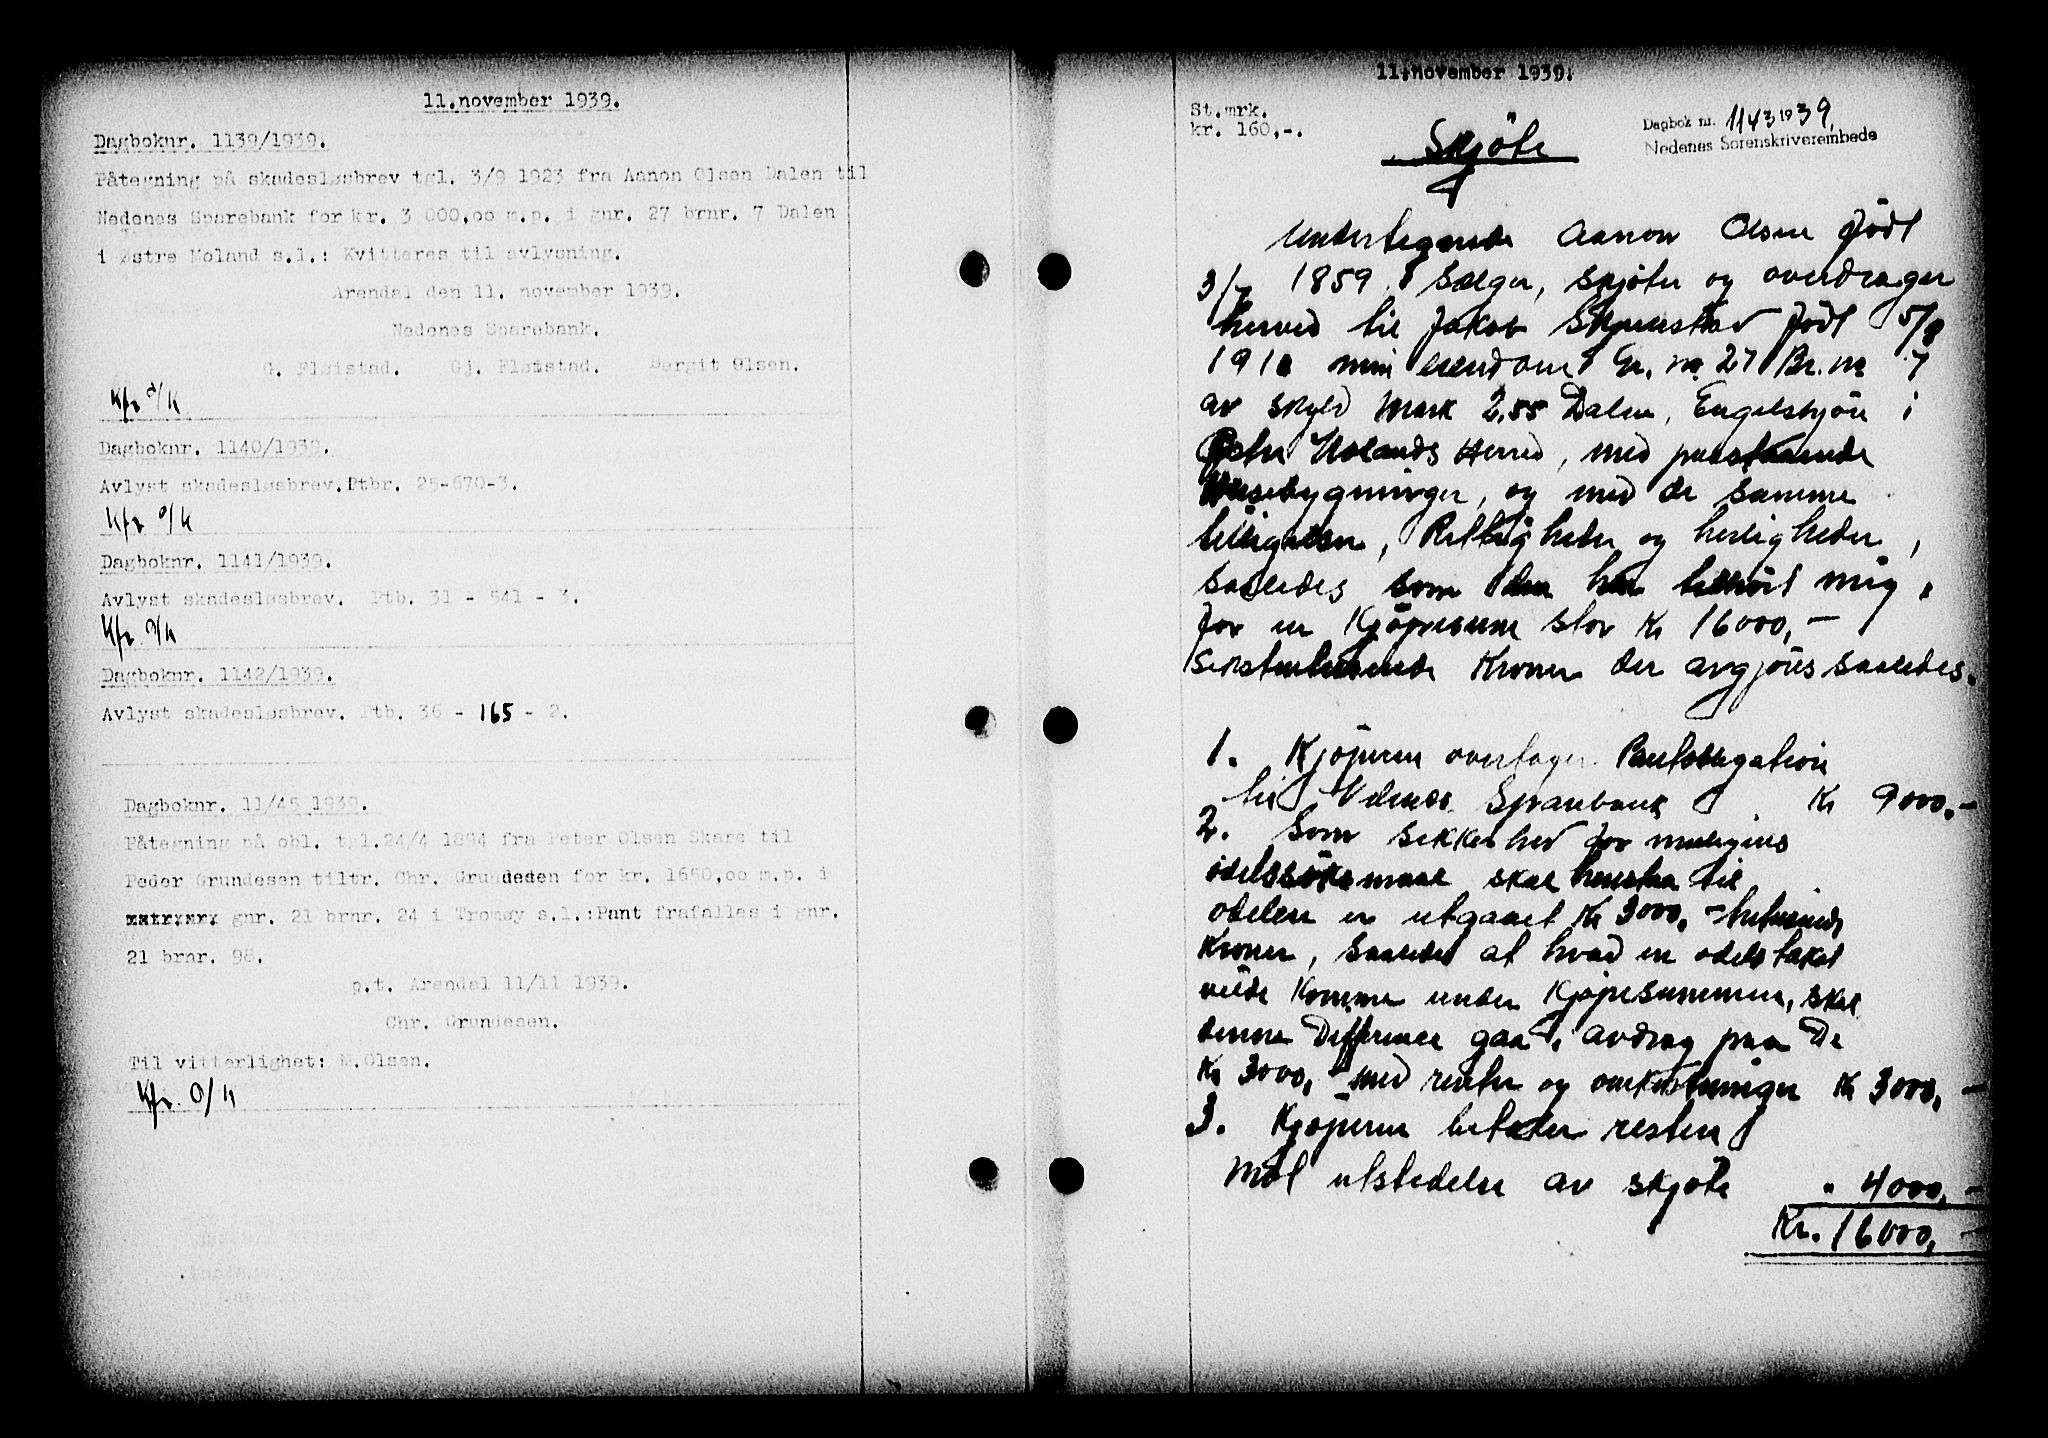 11.november 1939.
Dagboknr. 1139/1939.
Påtegning på skadesløsbrev tgl. 3/9 1923 fra Aanon Olsen Dalen til
Nedenes Sparebank for kr. 3 000,00 m.p. i gnr. 27 brnr. 7 Dalen
i Østre Moland s.l.: Kvitteres til avlysning.
Arendal den 11. november 1939.
Nedenes Sparebank.
G. Fløistad. Gj. Fløistad. Bergit Olsen.
Kfr.
Dagboknr. 1140/1939.
Avlyst skadesløsbrev.Ptbr. 25-670-3.
Kfr.
Dagboknr. 1141/1939.
Avlyst skadesløsbrev. Ptb. 31 - 541 - 3.
Kfr.
Dagboknr. 1142/1939.
Avlyst skadesløsbrev. Ptb. 36 - 165 - 2.
Dagboknr. 11/45 1939.
Påtegning på obl. tgl.24/4 1894 fra Peter Olsen Skare til
Peder Grundesen tiltr. Chr. Grundesen for kr. 1650,00 m.p. i
gnr. 21 brnr. 24 i Tromøy s.l.:Pant frafalles i gnr.
21 brnr. 98.
p.t. Arendal 11/11 1939.
Chr. Grundesen.
Til vitterlighet: M.Olsen.
Kfr.
11.november 1939.
St.mrk.
kr. 160,-.
Dagbok nr. 1143 1939
Nedenes Sorenskriverembede
Skjöte
Undertegnede Aanon Olsen född
3/7 1859 sælger, skjöter og overdrager
herved til Jakob Skjenstad född 5/8
191 min eiendom Gr. no 27 Br. no 7
av skyld Mark 2,55 Dalen, Engelskjön i
Östre Molands Herred, med paastaaende
Husebygninger, og med de samme
tilligelser, Rettigheder og herligheder,
saaledes som den har tilhört mig,
for en Kjöpesum stor Kr 16000,-
sekstentusende Kroner der avgjöres saaledes.
1. Kjöperen overtager Pantobligation
til Nedenes Sparebank Kr 9000.-
2. Som sikkerhed for muligens
odelssöksmaal skal henstaa til
odelen er utgaaet Kr 3000,- tretusende
Kroner, saaledes at hvad en odelstakst
vilde komme under Kjöpesummen, skal
denne Difference gaa i avdrag paa De
Kr 3000,- med renter og omkostninger Kr 3000,-
3. Kjöperen betaler resten
mot utstedelse av skjöte " 4000,-
Kr. 16000,-